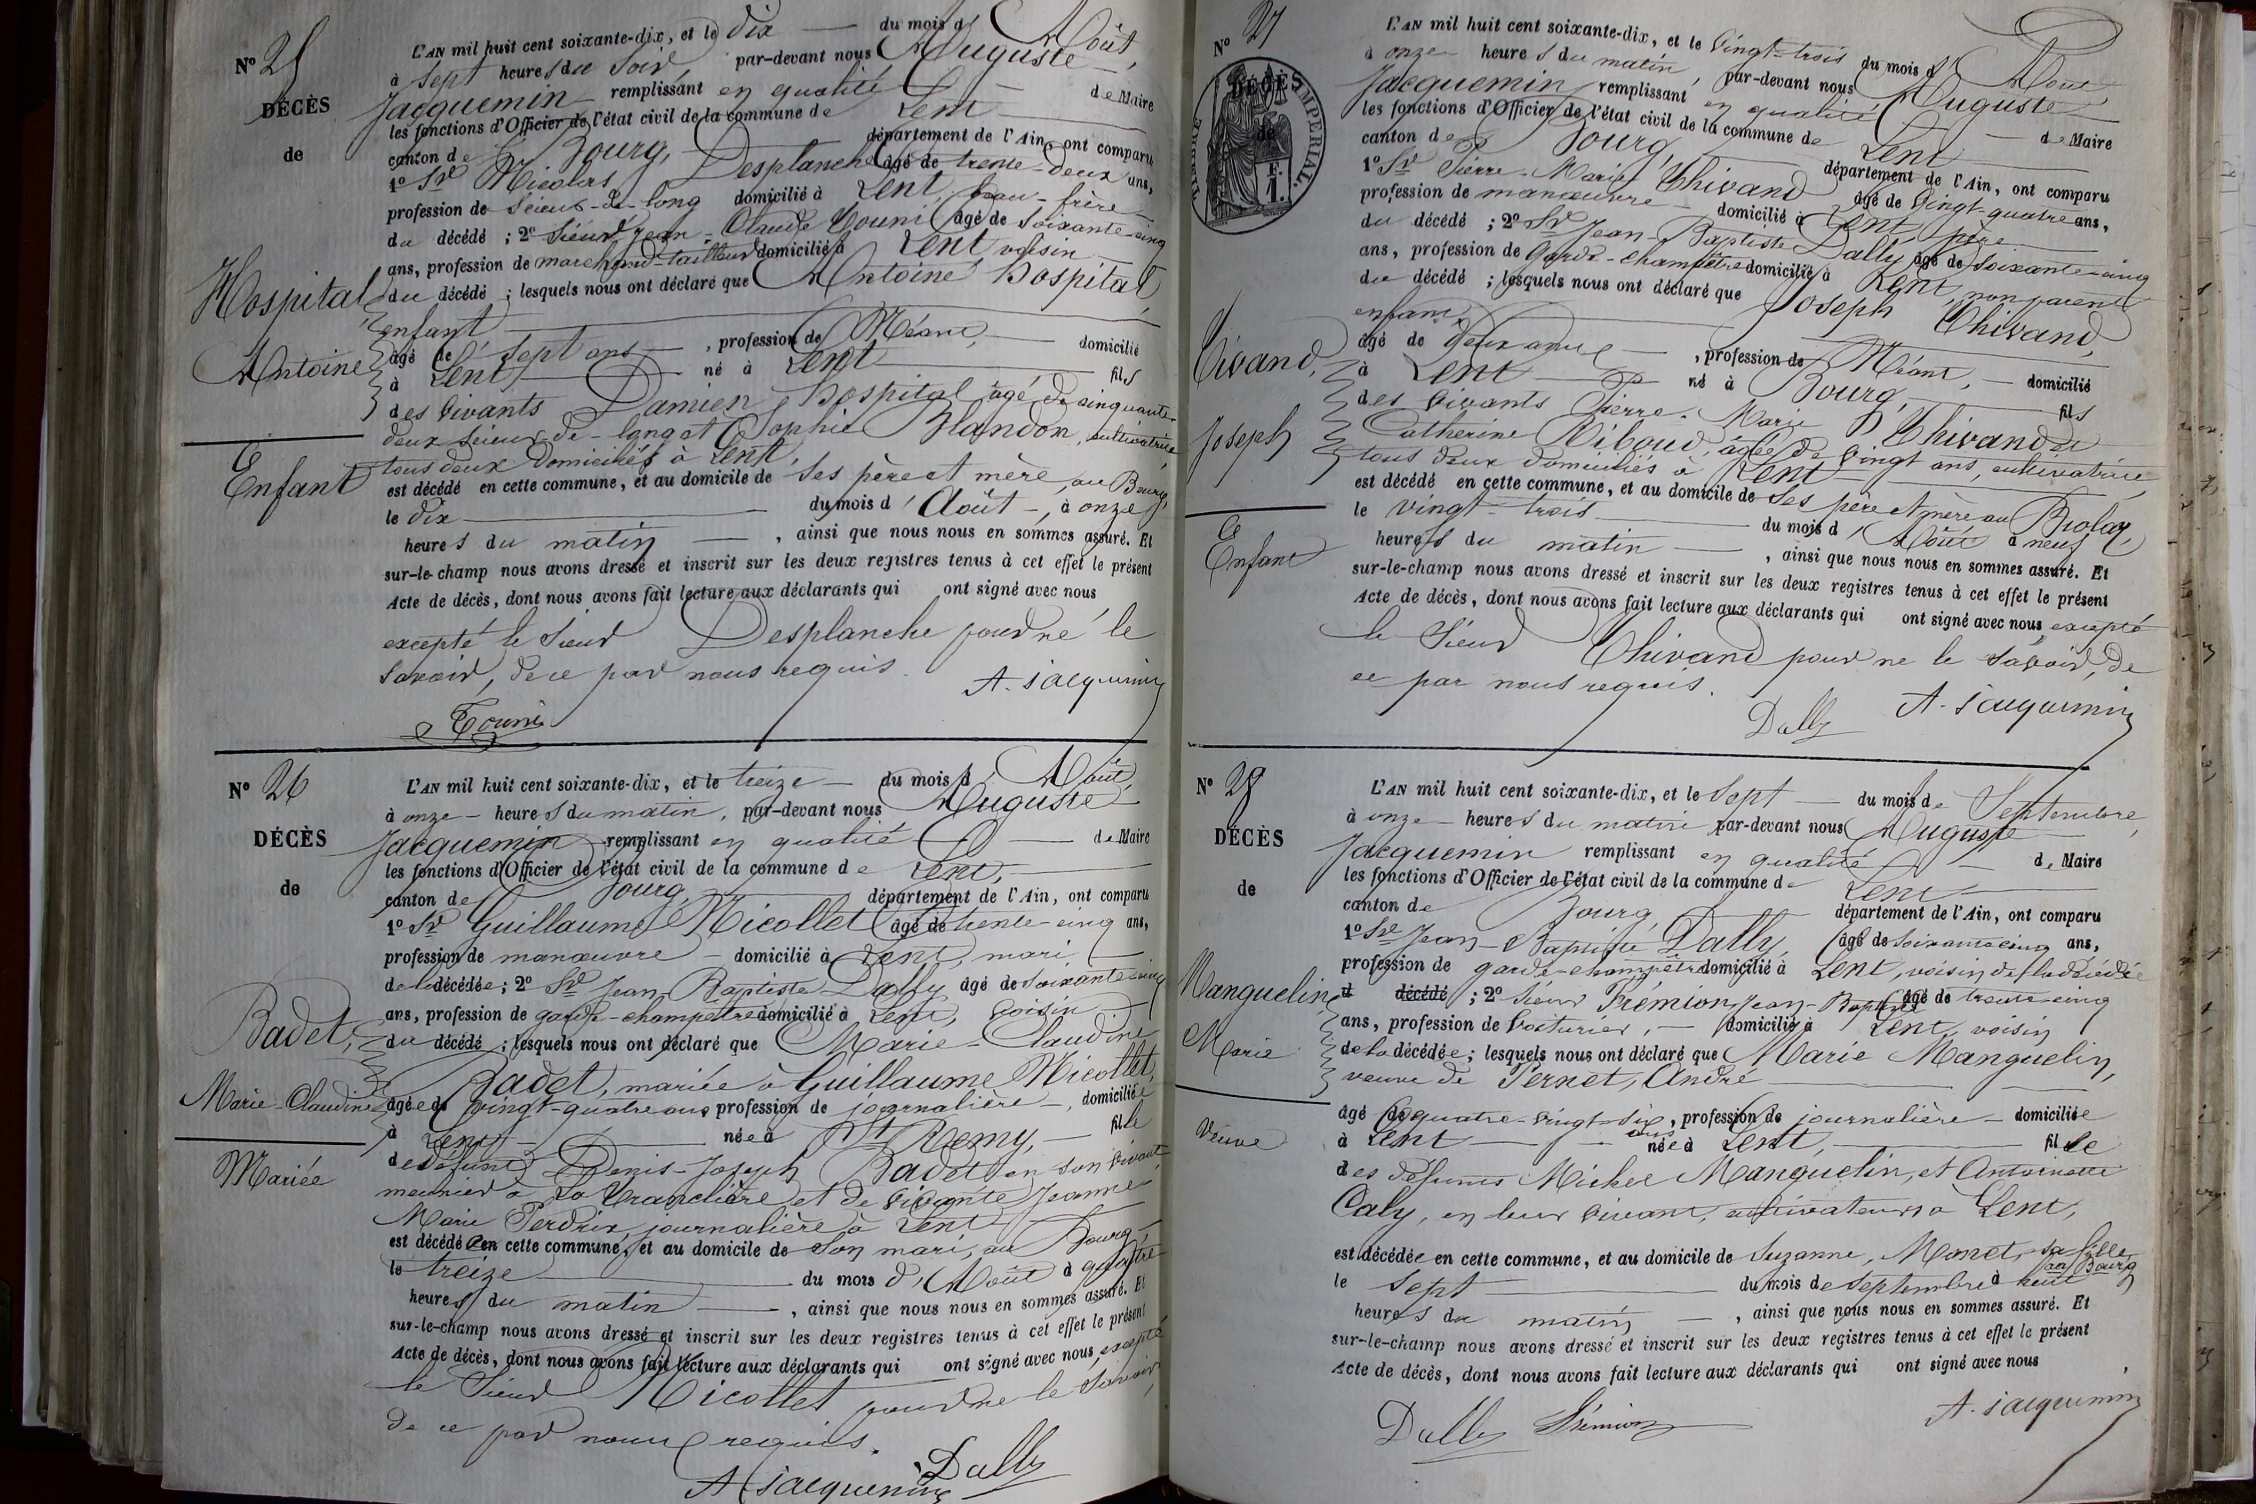 N° 25
DÉCÈS
de
Hospital
Antoine
Enfant
L'AN mil huit cent soixante-dix, et le dix du mois d'Août,
à sept heures du soir, par-devant nous Auguste
Jacquemin remplissant en qualité de Maire
les fonctions d'Officier de l'état civil de la commune de Lent
canton de Bourg, département de l'Ain, ont comparu
1° Sr Nicolas Desplanche âgé de trente-deux ans,
profession de scieur-de-long domicilié à Lent, beau-frère
du décédé ; 2° Sieur Jean-Claude Tourni âgé de soixante-cinq
ans, profession de marchand-tailleur domicilié à Lent voisin
du décédé ; lesquels nous ont déclaré que Antoine hospital,
enfant
âgé de sept ans, profession de Néant, domicilié
à Lent né à Lent fils
des vivants Damien hospital âgé de cinquante-
deux scieur-de-long et Sophie Blandon, cultivatrice
tous deux domiciliés à Lent,
est décédé en cette commune, et au domicile de ses père et mère, au Bourg,
le dix du mois d'Août, à onze
heures du matin, ainsi que nous nous en sommes assuré. Et
sur-le-champ nous avons dressé et inscrit sur les deux registres tenus à cet effet le présent
Acte de décès, dont nous avons fait lecture aux déclarants qui ont signé avec nous
excepté le sieur Desplanche pour ne le
savoir, de ce par nous requis.
A. Jacquemin
Tourni
N° 26
DÉCÈS
de
Badet,
Marie-Claudine
Mariée
L'AN mil huit cent soixante-dix, et le treize du mois d'Août,
à onze heures du matin, par-devant nous Auguste
Jacquemin remplissant en qualité de Maire
les fonctions d'Officier de l'état civil de la commune de Lent,
canton de Bourg, département de l'Ain, ont comparu
1° Sr Guillaume Nicollet âgé de trente-cinq ans,
profession de manœuvre domicilié à Lent, mari
de la décédée ; 2° Sr Jean-Baptiste Dally âgé de soixante-cinq
ans, profession de garde-champêtre domicilié à Lent, voisin
du décédé ; lesquels nous ont déclaré que Marie-Claudine
Badet, mariée à Guillaume Nicollet,
âgée de vingt-quatre ans profession de journalière, domiciliée
à Lent née à St Remy, fille
de défunt Denis-Joseph Badet en son vivant
meunier à La Tranclière et de vivante Jeanne-
Marie Perdrix, journalière à Lent
est décédée en cette commune, et au domicile de son mari, au Bourg,
le treize du mois d'Août à quatre
heures du matin, ainsi que nous nous en sommes assuré. Et
sur-le-champ nous avons dressé et inscrit sur les deux registres tenus à cet effet le présent
Acte de décès, dont nous avons fait lecture aux déclarants qui ont signé avec nous, excepté
le Sieur Nicollet pour ne le savoir,
de ce par nous requis.
Dally
A. Jacquemin
N° 27
DÉCÈS
de
TIMBRE IMPERIAL.
F.
1.
Tivand,
Joseph
Enfant
L'AN mil huit cent soixante-dix, et le vingt-trois du mois d'Août,
à onze heures du matin, par-devant nous Auguste
Jacquemin remplissant en qualité de Maire
les fonctions d'Officier de l'état civil de la commune de Lent
canton de Bourg département de l'Ain, ont comparu
1° Sr Pierre-Marie Thivand âgé de vingt-quatre ans,
profession de manœuvre domicilié à Lent, père
du décédé ; 2° Sr Jean-Baptiste Dally âgé de soixante-cinq
ans, profession de garde-champêtre domicilié à Lent, non parent
du décédé ; lesquels nous ont déclaré que Joseph Thivand,
enfant,
âgé de deux ans, profession de Néant, domicilié
à Lent né à Bourg, fils
des vivants Pierre-Marie Thivand et
Catherine Riboud, âgée de vingt ans, cultivatrice
tous deux domiciliés à Lent
est décédé en cette commune, et au domicile de ses père et mère au Biolay,
le vingt-trois du mois d'Août à neuf
heures du matin, ainsi que nous nous en sommes assuré. Et
sur-le-champ nous avons dressé et inscrit sur les deux registres tenus à cet effet le présent
Acte de décès, dont nous avons fait lecture aux déclarants qui ont signé avec nous excepté
le Sieur Thivand pour ne le savoir, de
ce par nous requis.
A. Jacquemin
Dally
N° 28
DÉCÈS
de
Manguelin,
Marie
Veuve
L'AN mil huit cent soixante-dix, et le sept du mois de Septembre,
à onze heures du matin par-devant nous Auguste
Jacquemin remplissant en qualité de Maire
les fonctions d'Officier de l'état civil de la commune de Lent
canton de Bourg, département de l'Ain, ont comparu
1° Sr Jean-Baptiste Dally, âgé de soixante cinq ans,
profession de garde-champêtre domicilié à Lent, voisin de la décédée
d décédé ; 2° Sieur Trémion Jean-Baptiste âgé de trente-cinq
ans, profession de voiturier, domicilié à Lent, voisin
de la décédée ; lesquels nous ont déclaré que Marie Manguelin,
veuve de Pernet, André
âgé de quatre-vingt-six ans, profession de journalière domiciliée
à Lent née à Lent, fille
des défunts Michel Manguelin, et Antoinette
Caly, en leur vivant, cultivateurs à Lent,
est décédée en cette commune, et au domicile de Suzanne, Monet, sa fille, au Bourg
le sept du mois de septembre à huit
heures du matin, ainsi que nous nous en sommes assuré. Et
sur-le-champ nous avons dressé et inscrit sur les deux registres tenus à cet effet le présent
Acte de décès, dont nous avons fait lecture aux déclarants qui ont signé avec nous
A. Jacquemin
Dally Trémion